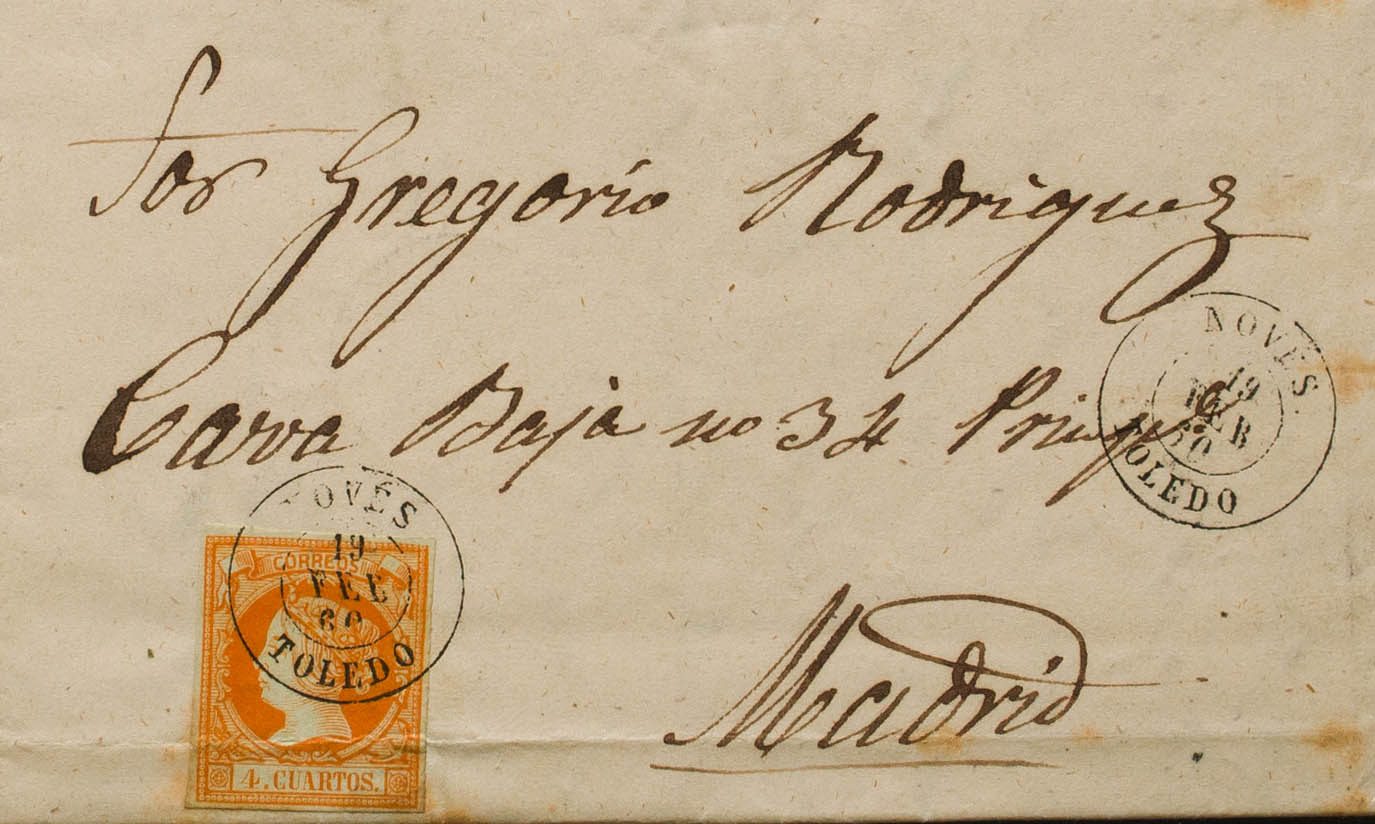 Sor Gregorio Rodriguez
Cava Baja no 34 Pringl
Madrid
NOVES.
19
FEB
60
TOLEDO
NOVES
19
FEB
60
TOLEDO
CORREOS
4. CUARTOS.